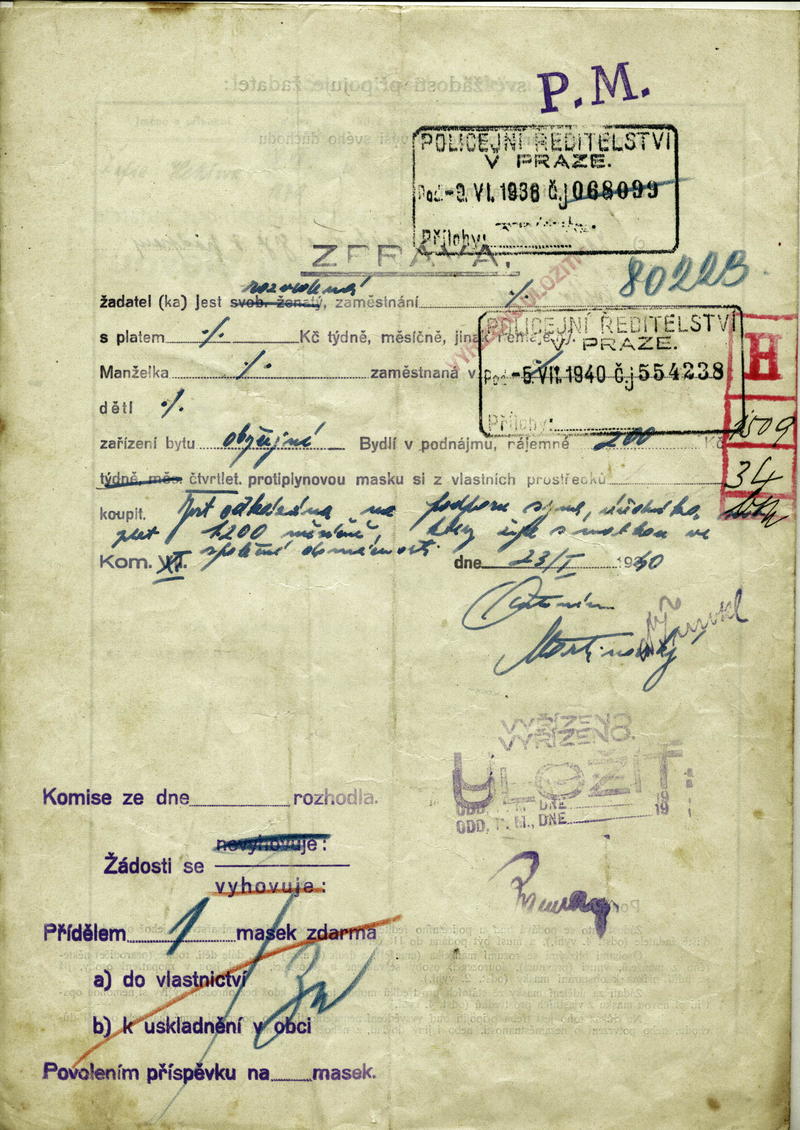 P. M.
POLICEJNÍ ŘEDITELSTVÍ
V PRAZE.
Pod. -9. VI. 1936 č.j 068099
Přílohy:
ZPRÁVA.
80223
rozvedená
žadatel (ka) jest svob. ženatý, zaměstnání ./.
s platem ./. Kč týdně, měsíčně, jiná
POLICEJNÍ ŘEDITELSTVÍ
V PRAZE.
Pod. -5. VII. 1940 č.j 554238
Přílohy:
H
Manželka ./. zaměstnaná v
dětí ./.
zařízení bytu obyčejné Bydlí v podnájmu, nájemné 200 Kč
1509
týdně, měs. čtvrtlet. protiplynovou masku si z vlastních prostředků
34
koupit. Jest odkázána na podporu syna, úředníka,
plat 1200 měsíčně, který žije s matkou ve
společné domácnosti.
Kom. VI. XI. dne 23/I 1940
Antonín
VYŘÍZENO
VYŘÍZENO.
ULOŽIT
ODD. P. M., DNE 19
ODD. P. M., DNE 19
Komise ze dne rozhodla.
nevyhovuje:
Žádosti se
vyhovuje:
Přídělem 1 masek zdarma
a) do vlastnictví
b) k uskladnění v obci
Povolením příspěvku na masek.